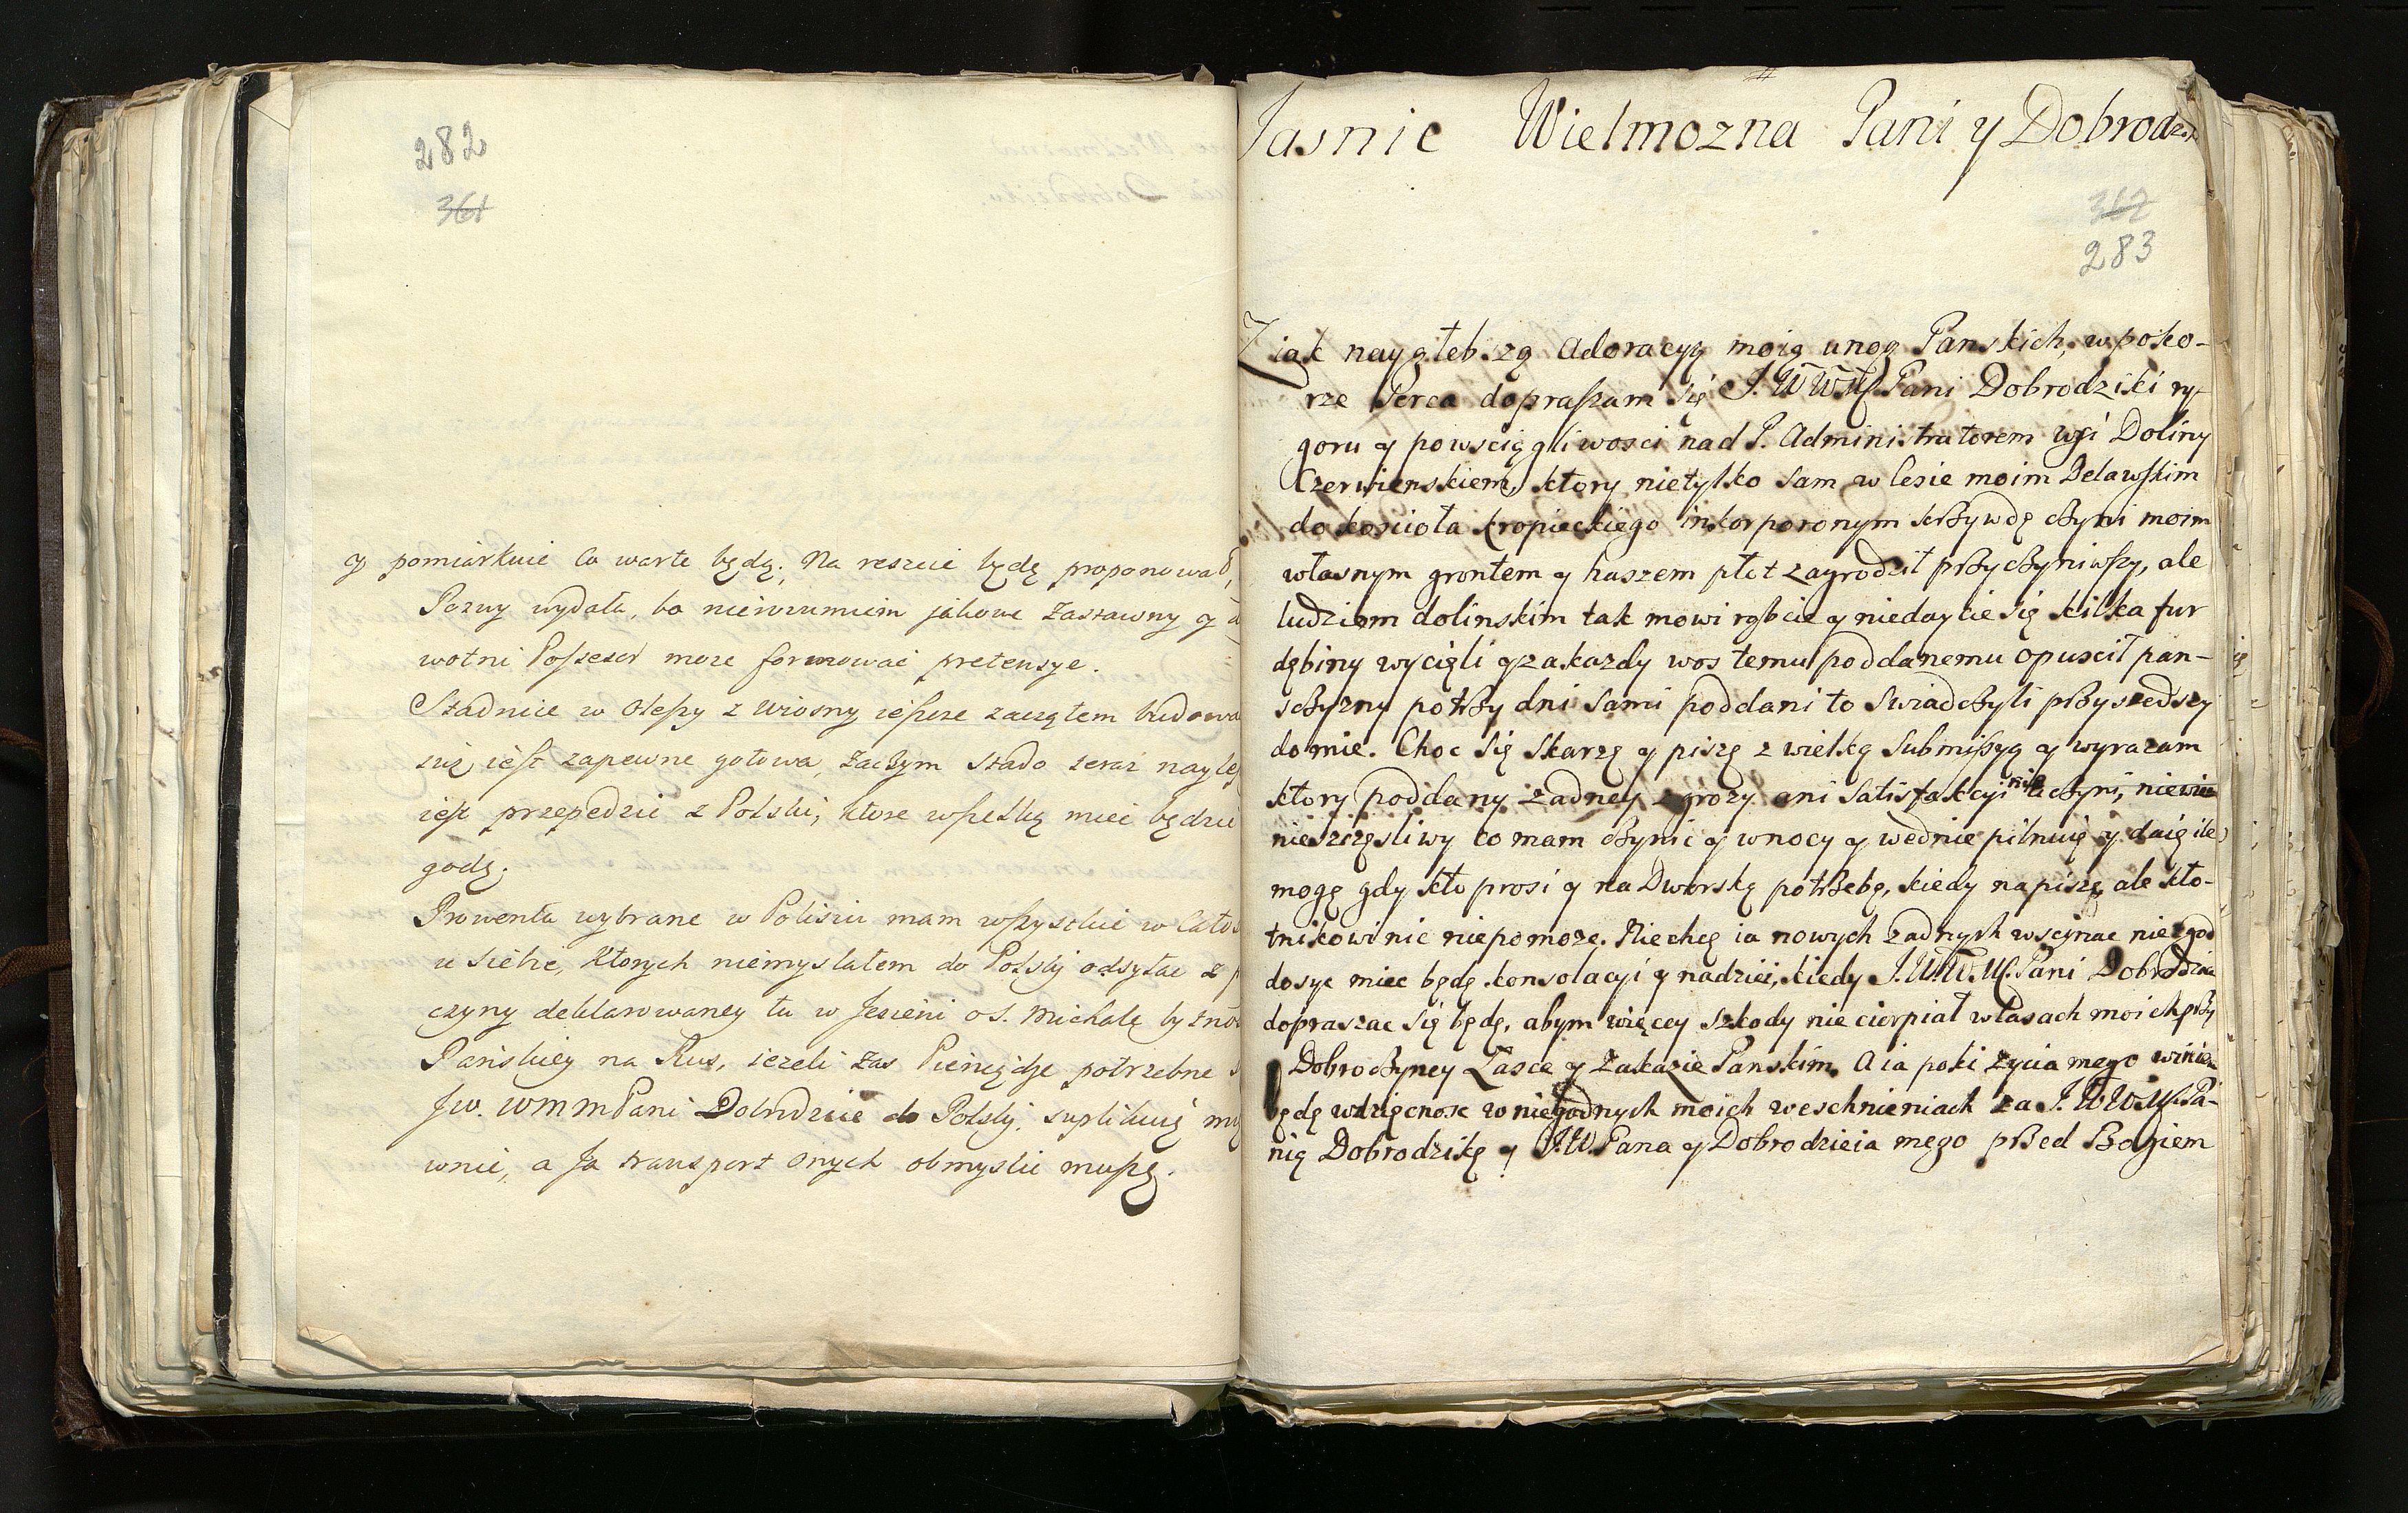 282
361
y pomiarkuie co warte będą. Na reszcie będę proponował,
Pozwy wydała, bo nierozumiem jakowe Zastawny y
wotni Possesor może formować pretensye.
Stadnice w Olepy z wiosny ieszcze zacząłem budowa
iuż iest zapewne gotowa, zaczym stado teraz nayle
iest przepędzić z Polski, ktore wszelką mieć będzie
godę.
Prowenta wybrane w Polisiu mam wszystkie w Cało
u siebie, Ktorych niemyslałem do Polskj odsyłać z
czyny deklarowaney tu w Jesieni o S. Michale bytno
Pańskiey na Rus, ieżeli zas Pieniędze potrzebne
JW. WMMPani Dobrodzice do Polskj. suplikuię
wnie, a Ja transport onych obmyslić muszę.
Jasnie Wielmozna Pani y Dobrodz
367
283
Z iak naygłebszą Adoracyą moią unog Panskich, w poko-
rze Serca dopraszam się J. W W.M. Pani Dobrodziki ry-
goru y powsciągliwosci nad P. Administratorem wsi Doliny
Czerwienskiem, ktory nietylko sam w lesie moim Delawskim
do kościoła kropieckiego inkorporonym krzywdę czyni moim
własnym grontem y haszem płot zagrodził przyczyniwszy, ale
ludziom dolinskim tak mowi rąbcie y niedaycie się kilka fur
dębiny wycięli y zakazdy wos temu poddanemu opuscił pan-
sczyzny potrzy dni sami poddani to swiadczyli przyszedszy
do mie. Choc się skarzę y piszę z wielką submissyą y wyrazam
ktory poddany żadney zgrozy ani satisfakcyi nie czyni, niewie
nieszczęsliwy co mam czynic y wnocy y wednie pilnuię y daię ile
mogę gdy kto prosi y na Dworską potrzebę, kiedy napiszę, ale kło-
tnikowi nic niepomoze. Niechcę ia nowych zadnych wscynac niezgod
dosyc miec będę konsolacyi y nadziei, kiedy J.W.W.M. Pani Dobrodzice
dopraszac się będę, abym więcey szkody nie cierpiał w Lasach moich przy
Dobroczyney Łasce y Zakazie Panskim. A ia poki zycia mego winien
będę wdzięcnosc w niegodnych moich weschnieniach za J. W W.M. Pa-
nią Dobrodzikę y J.W. Pana y Dobrodzieia mego przed Bogiem